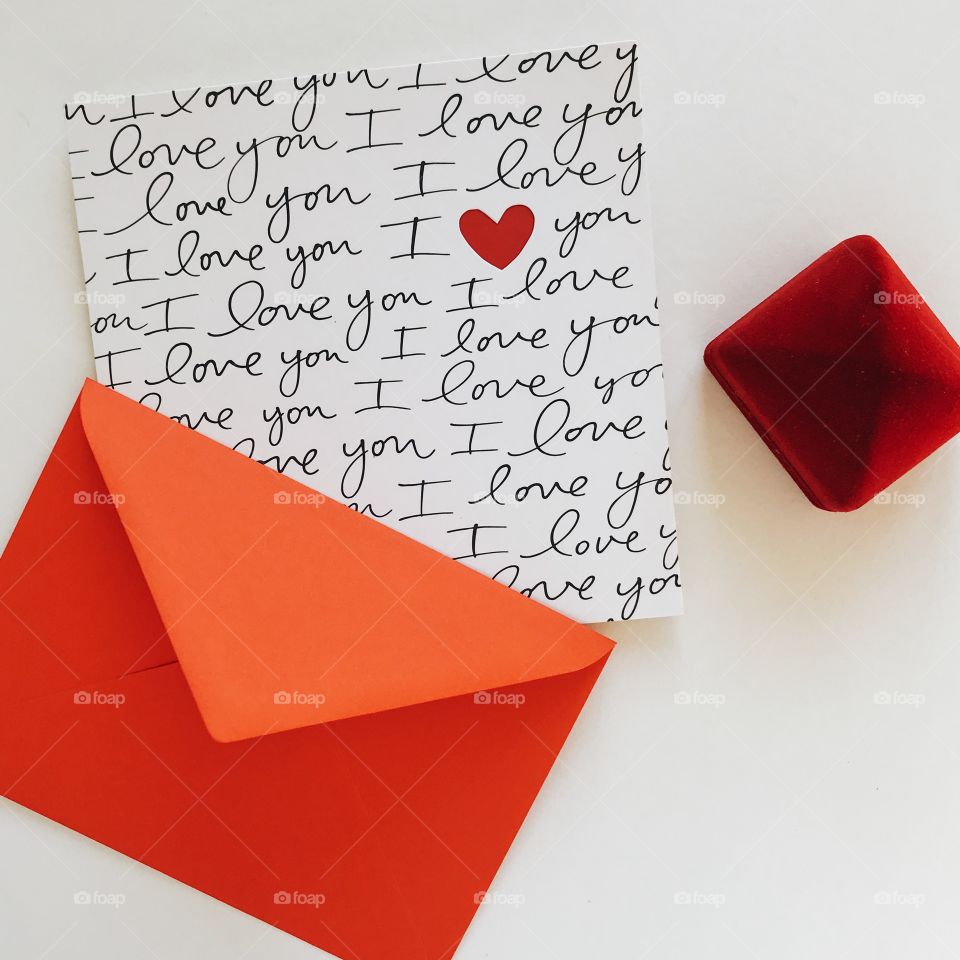 n I love you I love y
I love you I love you
I love you I love y
I love you I ❤ you
ou I love you I love
I love you I love you
love you I love yo
love you I love
I love yo
I love y
love you
foap